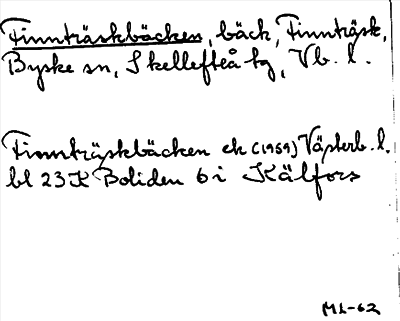 Finnträskbäcken, bäck, Finnträsk,
Byske sn, Skellefteå tg, Vb. l.
Finnträskbäcken ek (1959) Västerb. l.
bl 23 K Boliden 6 i Kälfors
ML-62